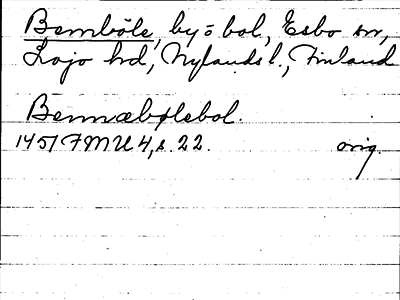 Bemböle, by = bol, Esbo sn,
Lojo hd, Nylands l., Finland
Bennæbølebol.
1451 FMU 4, s. 22. orig.